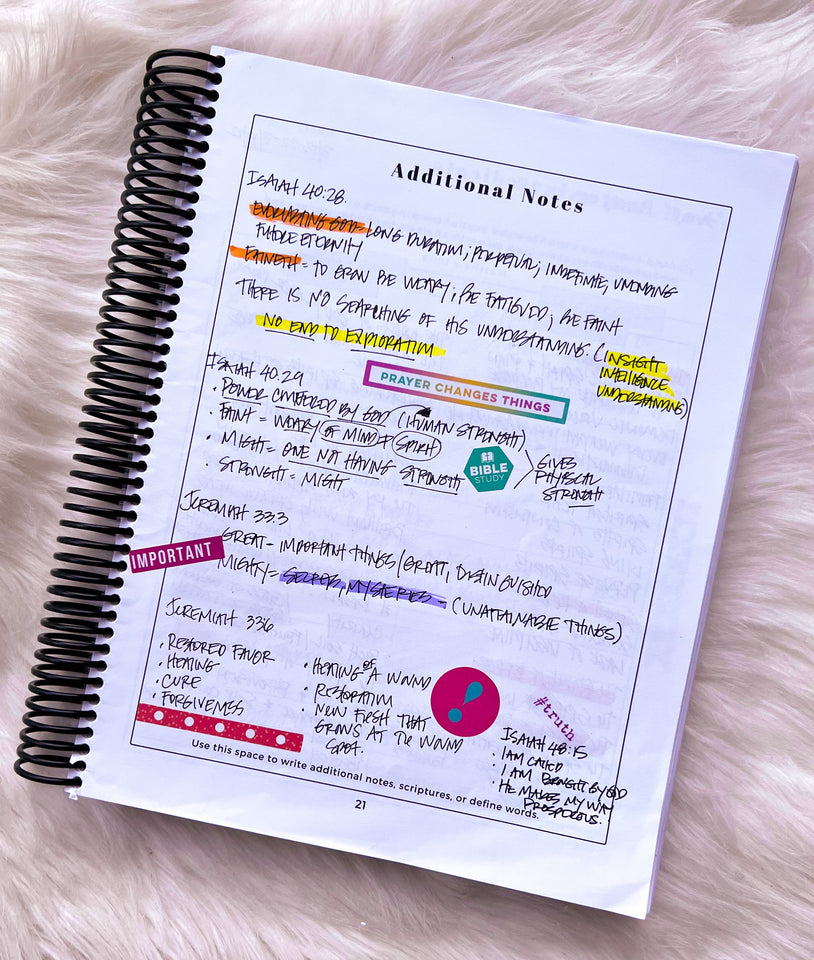 Additional Notes
ISAIAH 40:28.
EVERLASTING GOD = LONG DURATION; PERPETUAL; INDEFINITE, UNENDING
FUTURE ETERNITY
FAINETH = TO GROW BE WEARY; BE FATIGUED; BE FAINT
THERE IS NO SEARCHING OF HIS UNDERSTANDING. (INSIGHT
INTELLIGENCE
UNDERSTANDING)
NO END TO EXPLORATION
PRAYER CHANGES THINGS
ISAIAH 40:29
• POWER OFFERED BY GOD (HUMAN STRENGTH)
• FAINT = WEARY OF MIND SPIRIT
• MIGHT = ONE NOT HAVING STRENGTH
• STRENGTH = MIGHT
BIBLE
STUDY
GIVES
PHYSICAL
STRENGTH
JEREMIAH 33:3
IMPORTANT
GREAT - IMPORTANT THINGS / GREAT, DISTINGUISHED
MIGHTY = SECRETS, MYSTERIES - (UNATTAINABLE THINGS)
JEREMIAH 33:6
• RESTORED FAVOR
• HEALING
• CURE
• FORGIVENESS
• HEALING OF A WOUND
• RESTORATION
• NEW FLESH THAT
GROWS AT THE WOUND
SPOT.
!
#truth
ISAIAH 48:15
• I AM CALLED
I AM BROUGHT BY GOD
• HE MAKES MY WAY
PROSPEROUS.
Use this space to write additional notes, scriptures, or define words.
21